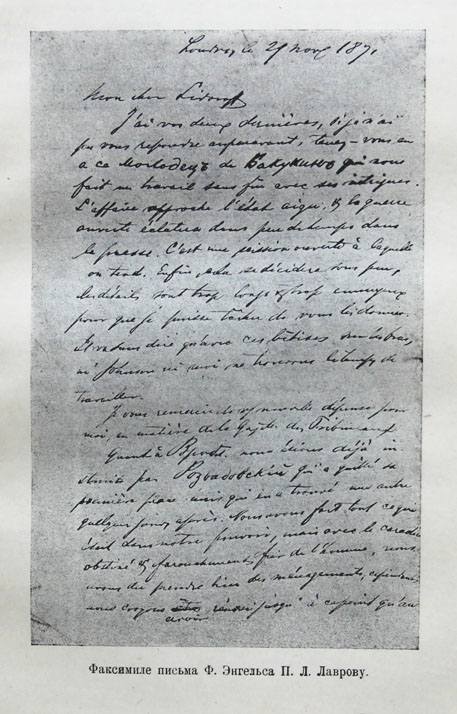 Londres, le 29 nov. 1871
Mon cher
J'ai vos deux dernières, si je n'ai
pu vous répondre auparavant, tenez-vous en
à ce молодецъ de Бакунинъ qui nous
fait un travail sans fin avec ses intrigues.
L'affaire approche l'état aigu, & la guerre
ouverte éclatera dans peu de temps dans
la presse. C'est une scission ouverte à laquelle
on tend. Enfin, cela se décidera sous peu,
les détails sont trop longs & trop ennuyeux
pour que je puisse tâcher de vous les donner.
Il va sans dire qu'avec ces bêtises sur les bras,
ni Johnson ni moi ne trouvons le temps de
travailler.
Je vous remercie de nouvelle dépense pour
moi, en matière de la Gazette des Tribunaux
Quant à nous étions déjà in
struits par Розвадовскій qui a quitté sa
première place mais qui en a trouvé une autre
quelques jours après. Nous avons fait tout ce qui
était dans notre pouvoir, mais avec le caractère
obstiné & farouchement fier de l'homme, nous
avons dû prendre bien des ménagements, cependant
nous croyons avoir réussi jusqu'à ce point qu'au
Факсимиле письма Ф. Энгельса П. Л. Лаврову.